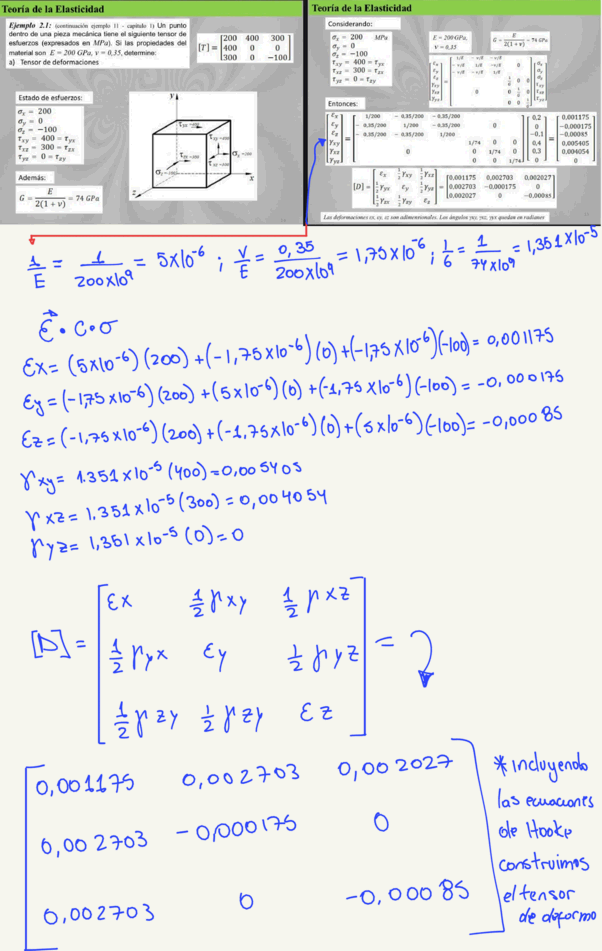 Teoría de la Elasticidad
Ejemplo 2.1: (continuación ejemplo 11 - capítulo 1) Un punto
dentro de una pieza mecánica tiene el siguiente tensor de
esfuerzos (expresados en MPa). Si las propiedades del
material son E = 200 GPa, v = 0,35, determine:
a) Tensor de deformaciones
[T] = [200 400 300
400 0 0
300 0 −100]
Estado de esfuerzos:
σx = 200
σy = 0
σz = −100
τxy = 400 = τyx
τxz = 300 = τzx
τyz = 0 = τzy
Además:
G = E / 2(1 + v) = 74 GPa
y
x
z
Teoría de la Elasticidad
Considerando:
σx = 200 MPa
σy = 0
σz = −100
τxy = 400 = τyx
τxz = 300 = τzx
τyz = 0 = τzy
E = 200 GPa,
v = 0,35
G = E / 2(1 + v) = 74 GPa
Entonces:
[εx] [1/200 − 0,35/200 − 0,35/200] [0,2] [0,001175]
[εy] [− 0,35/200 1/200 − 0,35/200] [0] [−0,000175]
[εz] [− 0,35/200 − 0,35/200 1/200] [−0,1] [−0,00085]
[γxy] = [1/74 0 0] [0,4] = [0,005405]
[γxz] [0 1/74 0] [0,3] [0,004054]
[γyz] [0 0 1/74] [0] [0]
[D] = [εx ½γxy ½γxz] [0,001175 0,002703 0,002027]
[½γyx εy ½γyz] = [0,002703 −0,000175 0]
[½γzx ½γzy εz] [0,002027 0 −0,00085]
Las deformaciones εx, εy, εz son adimensionales. Los ángulos γxy, γxz, γyz quedan en radianes
1/E = 1/200x10⁹ = 5x10⁻⁶ ; V/E = 0,35/200x10⁹ = 1,75x10⁻⁶ ; 1/6 = 1/74x10⁹ = 1,351x10⁻⁵
ε⃗ • C•σ
εx = (5x10⁻⁶)(200)+(−1,75x10⁻⁶)(0)+(−1,75x10⁻⁶)(−100)= 0,001175
εy = (−1,75x10⁻⁶)(200)+(5x10⁻⁶)(0)+(−1,75x10⁻⁶)(−100) = −0,000175
εz = (−1,75x10⁻⁶)(200)+(−1,75x10⁻⁶)(0)+(5x10⁻⁶)(−100)= −0,00085
γxy = 1.351x10⁻⁵(400)=0,005405
γxz = 1.351x10⁻⁵(300)=0,004054
γyz = 1,351x10⁻⁵(0)=0
[D] = [εx ½γxy ½γxz
½γyx εy ½γyz] =
½γzy ½γzy εz]
[0,001175 0,002703 0,002027
0,002703 −0,000175 0
0,002703 0 −0,00085]
*incluyendo
las ecuaciones
de Hooke
construimos
el tensor
de deformo